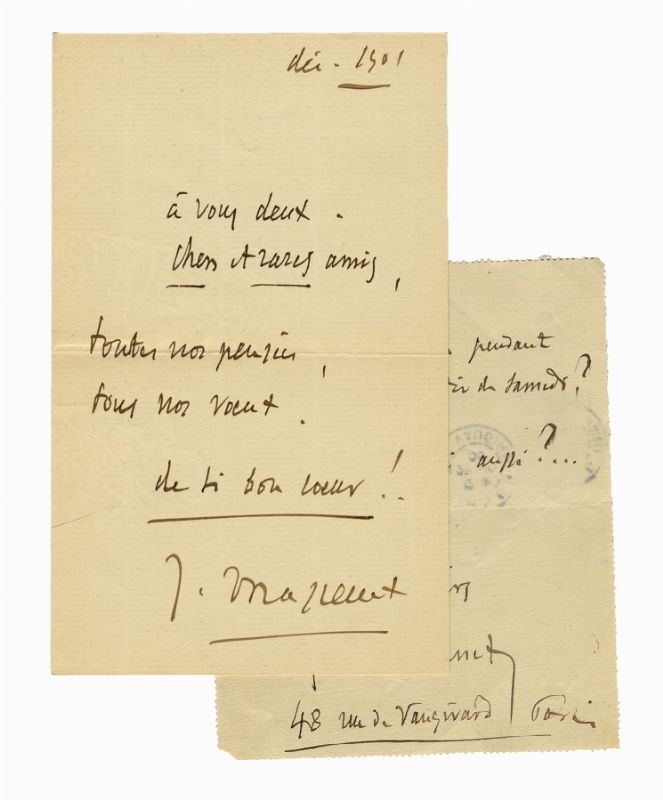 déc. 1901
à vous deux.
chers et rares amis,
toutes nos pensées,
tous nos vœux.
de si bon cœur!..
J. Massenet
pendant
de Samedi?
aussi?...
48 rue de Vaugirard Paris